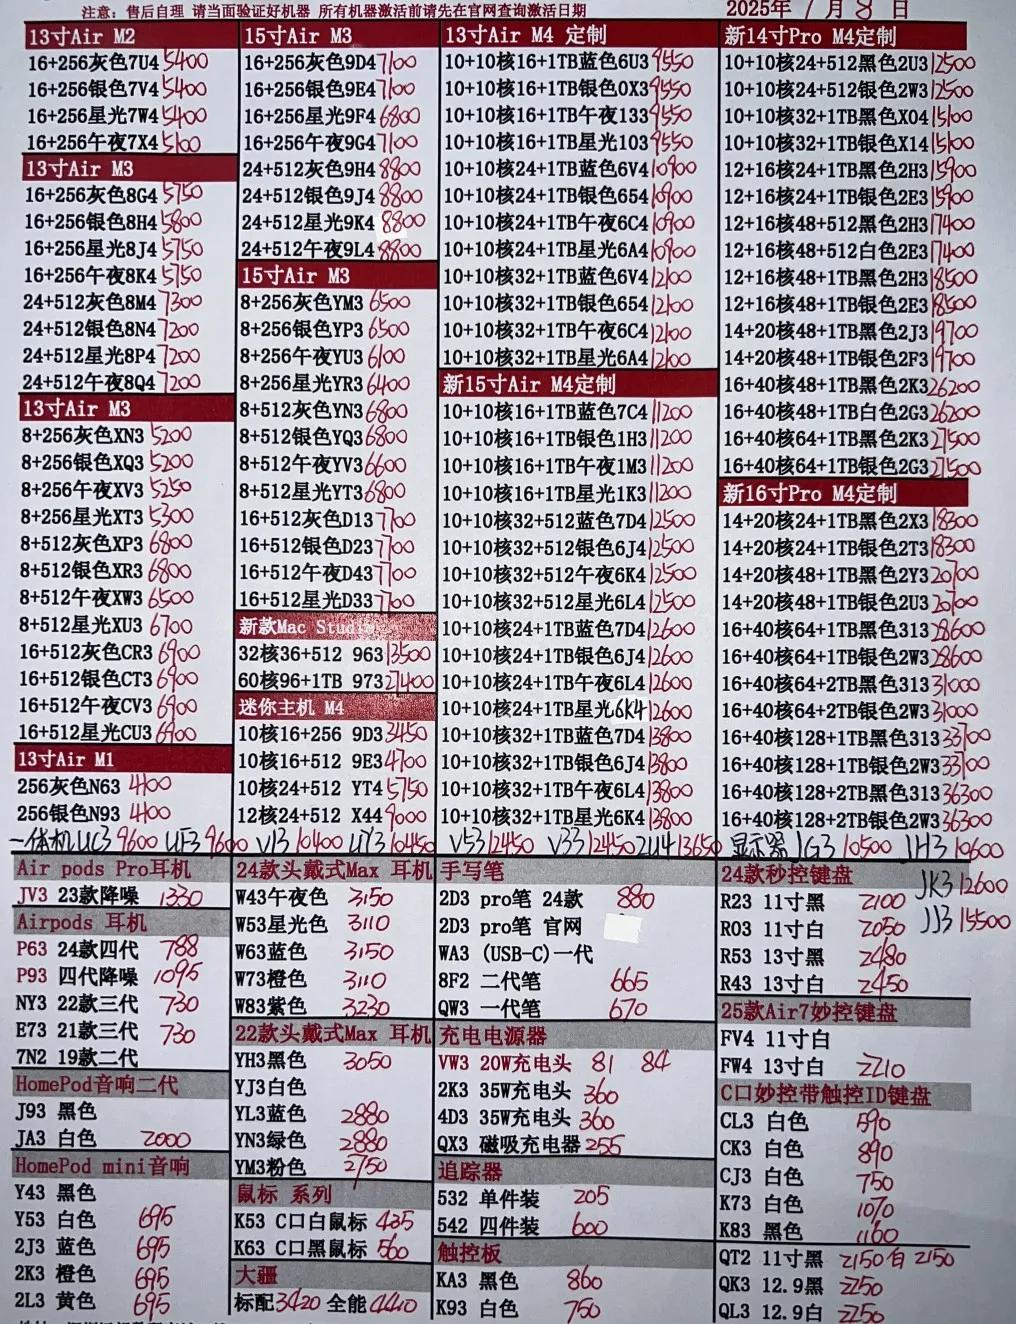 注意：售后自理 请当面验证好机器 所有机器激活前请先在官网查询激活日期
2025年7月8日
13寸Air M2
16+256灰色7U4 5400
16+256银色7V4 5400
16+256星光7W4 5400
16+256午夜7X4 5100
13寸Air M3
16+256灰色8G4 5750
16+256银色8H4 5800
16+256星光8J4 5750
16+256午夜8K4 5750
24+512灰色8M4 7300
24+512银色8N4 7200
24+512星光8P4 7200
24+512午夜8Q4 7200
13寸Air M3
8+256灰色XN3 5200
8+256银色XQ3 5200
8+256午夜XV3 5250
8+256星光XT3 5300
8+512灰色XP3 6800
8+512银色XR3 6800
8+512午夜XW3 6500
8+512星光XU3 6700
16+512灰色CR3 6900
16+512银色CT3 6900
16+512午夜CV3 6900
16+512星光CU3 6900
13寸Air M1
256灰色N63 4100
256银色N93 4100
15寸Air M3
16+256灰色9D4 7100
16+256银色9E4 7100
16+256星光9F4 6800
16+256午夜9G4 7100
24+512灰色9H4 8800
24+512银色9J4 8800
24+512星光9K4 8800
24+512午夜9L4 8800
15寸Air M3
8+256灰色YM3 6500
8+256银色YP3 6500
8+256午夜YU3 6100
8+256星光YR3 6400
8+512灰色YN3 6800
8+512银色YQ3 6800
8+512午夜YV3 6600
8+512星光YT3 6800
16+512灰色D13 7700
16+512银色D23 7700
16+512午夜D43 7700
16+512星光D33 7700
新款Mac Studio
32核36+512 963 13500
60核96+1TB 973 27400
迷你主机 M4
10核16+256 9D3 3450
10核16+512 9E3 4700
10核24+512 YT4 5750
12核24+512 X44 9000
13寸Air M4 定制
10+10核16+1TB蓝色6U3 9550
10+10核16+1TB银色0X3 9550
10+10核16+1TB午夜133 9550
10+10核16+1TB星光103 9550
10+10核24+1TB蓝色6V4 10900
10+10核24+1TB银色654 10900
10+10核24+1TB午夜6C4 10900
10+10核24+1TB星光6A4 10900
10+10核32+1TB蓝色6V4 12100
10+10核32+1TB银色654 12100
10+10核32+1TB午夜6C4 12100
10+10核32+1TB星光6A4 12100
新15寸Air M4定制
10+10核16+1TB蓝色7C4 11200
10+10核16+1TB银色1H3 11200
10+10核16+1TB午夜1M3 11200
10+10核16+1TB星光1K3 11200
10+10核32+512蓝色7D4 12500
10+10核32+512银色6J4 12500
10+10核32+512午夜6K4 12500
10+10核32+512星光6L4 12500
10+10核24+1TB蓝色7D4 12600
10+10核24+1TB银色6J4 12600
10+10核24+1TB午夜6L4 12600
10+10核24+1TB星光6K4 12600
10+10核32+1TB蓝色7D4 13800
10+10核32+1TB银色6J4 13800
10+10核32+1TB午夜6L4 13800
10+10核32+1TB星光6K4 13800
新14寸Pro M4定制
10+10核24+512黑色2U3 12500
10+10核24+512银色2W3 12500
10+10核32+1TB黑色X04 15100
10+10核32+1TB银色X14 15100
12+16核24+1TB黑色2H3 15900
12+16核24+1TB银色2E3 15900
12+16核48+512黑色2H3 17400
12+16核48+512白色2E3 17400
12+16核48+1TB黑色2H3 18500
12+16核48+1TB银色2E3 18500
14+20核48+1TB黑色2J3 19700
14+20核48+1TB银色2F3 19700
16+40核48+1TB黑色2K3 26200
16+40核48+1TB白色2G3 26200
16+40核64+1TB黑色2K3 27500
16+40核64+1TB银色2G3 27500
新16寸Pro M4定制
14+20核24+1TB黑色2X3 18300
14+20核24+1TB银色2T3 18300
14+20核48+1TB黑色2Y3 20700
14+20核48+1TB银色2U3 20700
16+40核64+1TB黑色313 28600
16+40核64+1TB银色2W3 28600
16+40核64+2TB黑色313 31000
16+40核64+2TB银色2W3 31000
16+40核128+1TB黑色313 33100
16+40核128+1TB银色2W3 33100
16+40核128+2TB黑色313 36300
16+40核128+2TB银色2W3 36300
一体机UC3 9600 UF3 9600 V13 10400 UY3 10450 V53 12450 V33 12450 2U4 13650 显示器 JG3 10500 JH3 10600
JK3 12600
JJ3 15500
Air pods Pro耳机
JV3 23款降噪 1330
Airpods 耳机
P63 24款四代 788
P93 四代降噪 1095
NY3 22款三代 730
E73 21款三代 730
7N2 19款二代
HomePod音响二代
J93 黑色
JA3 白色 2000
HomePod mini音响
Y43 黑色
Y53 白色 695
2J3 蓝色 695
2K3 橙色 695
2L3 黄色 695
24款头戴式Max 耳机
W43午夜色 3150
W53星光色 3110
W63蓝色 3150
W73橙色 3110
W83紫色 3230
22款头戴式Max 耳机
YH3黑色 3050
YJ3白色
YL3蓝色 2880
YN3绿色 2880
YM3粉色 2750
鼠标 系列
K53 C口白鼠标 435
K63 C口黑鼠标 560
大疆
标配3420 全能4440
手写笔
2D3 pro笔 24款 880
2D3 pro笔 官网
WA3 (USB-C)一代
8F2 二代笔 665
QW3 一代笔 670
充电电源器
VW3 20W充电头 81 84
2K3 35W充电头 360
4D3 35W充电头 360
QX3 磁吸充电器 255
追踪器
532 单件装 205
542 四件装 600
触控板
KA3 黑色 860
K93 白色 750
24款秒控键盘
R23 11寸黑 2100
R03 11寸白 2050
R53 13寸黑 2480
R43 13寸白 2450
25款Air7妙控键盘
FV4 11寸白
FW4 13寸白 2210
C口妙控带触控ID键盘
CL3 白色 590
CK3 白色 890
CJ3 白色 750
K73 白色 1070
K83 黑色 1160
QT2 11寸黑 2150 白 2150
QK3 12.9黑 2250
QL3 12.9白 2250